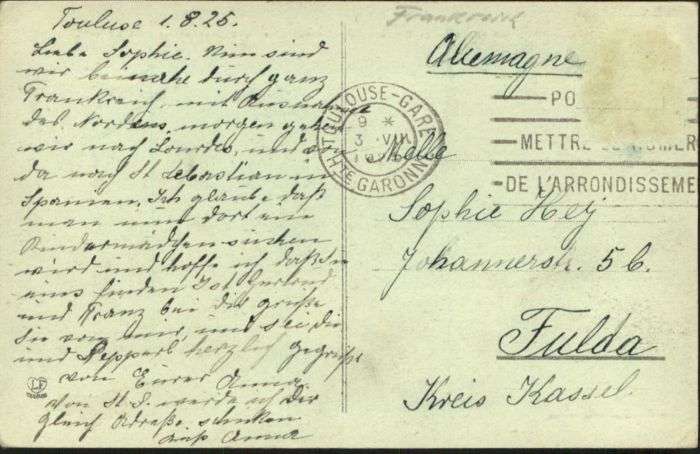 Toulouse 1.8.25.
Liebe Sophie. Nun sind
wir beinahe durch ganz
Frankreich, mit Ausnahme
des Nordens, morgen gehen
wir nach Lourdes, und von
da nach St Sebastian in
Spanien. Ich glaube daß
man nun dort ein
Kindermädchen suchen
wird und hoffe ich daß Sie
eins finden Ist Gertrud
und Franz bei dir grüße
Sie von mir, und sei du
und Pepperl herzlich gegrüßt
von Eurer Anna
von St S. werde ich dir
gleich Adreße schicken
Anna
LF
Frankreich
Allemagne
TOULOUSE-GARE
9 *
3 VIII
HTE GARONNE
PO
METTRE
DE L'ARRONDISSEME
Melle
Sophie Hej
Johannerstr. 5 b.
Fulda
Kreis Kassel.